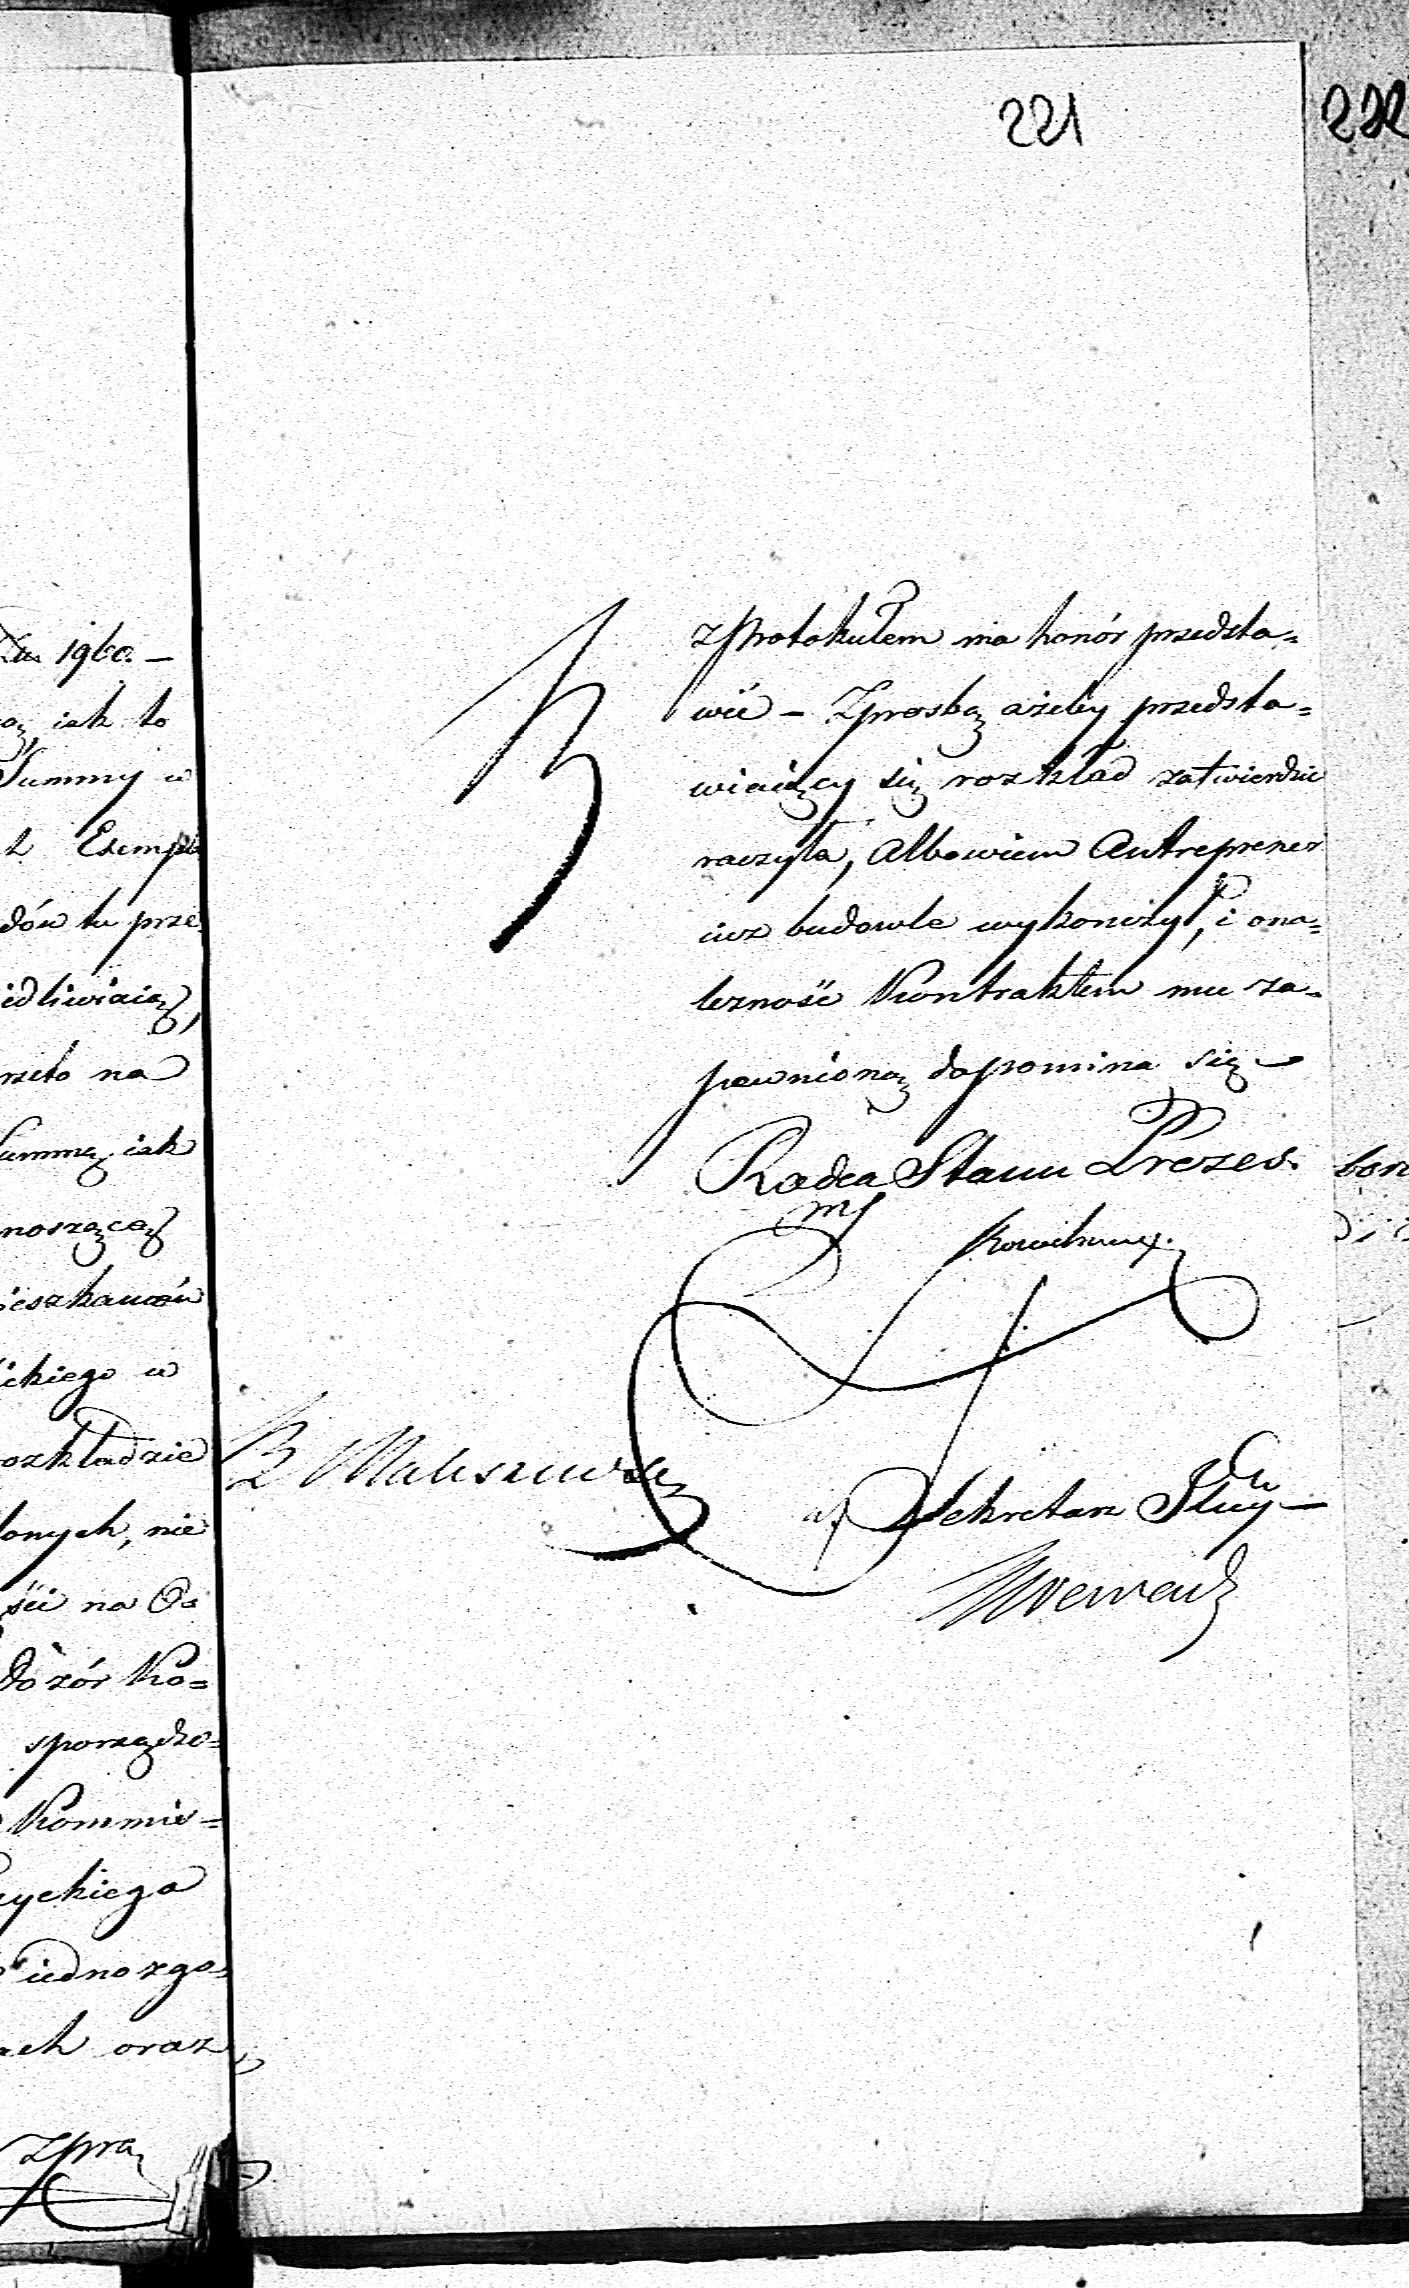 221
222
1960. —
iak to
Summy w
Exempla
dów tu prze
iedliwiaią,
rzeto na
Summą iak
noszącą
ieszkanców
ickiego w
ozkładzie
lonych, nie
ści na
dozór Ko=
sporządzo=
Kommis=
yckiego
iednozgo=
ach oraz
zpro
zProtokułem ma honór przedsta=
wić – Zprosbą ażeby przedsta=
wiaiący się rozkład zatwierdzić
raczyła, Albowiem Antreprener
iuż budowle wykończył, i ona=
leżność Kontraktem mu za=
pewnioną dopomina się
Radca Stanu Prezes.
B Maliszewski
Sekretarz Jlny